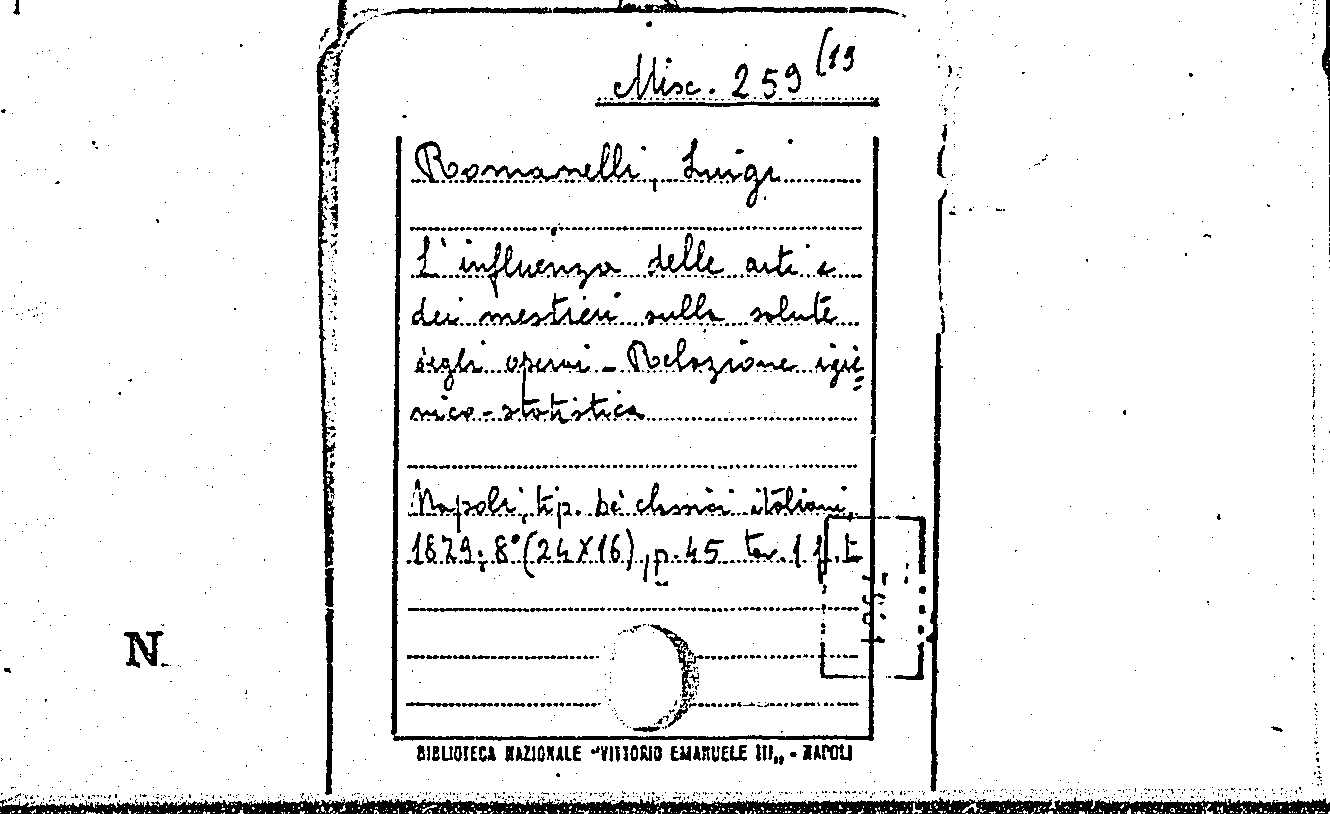 Misc. 259 (19
Romanelli, Luigi
L'influenza delle arti e
dei mestieri sulla salute
degli operai - Relazione igie=
nico-statistica
Napoli, tip. dei classici italiani,
1879; 8° (24X16), p. 45 tav. 1 f. t
N
BIBLIOTECA NAZIONALE "VITTORIO EMANUELE III„ - NAPOLI